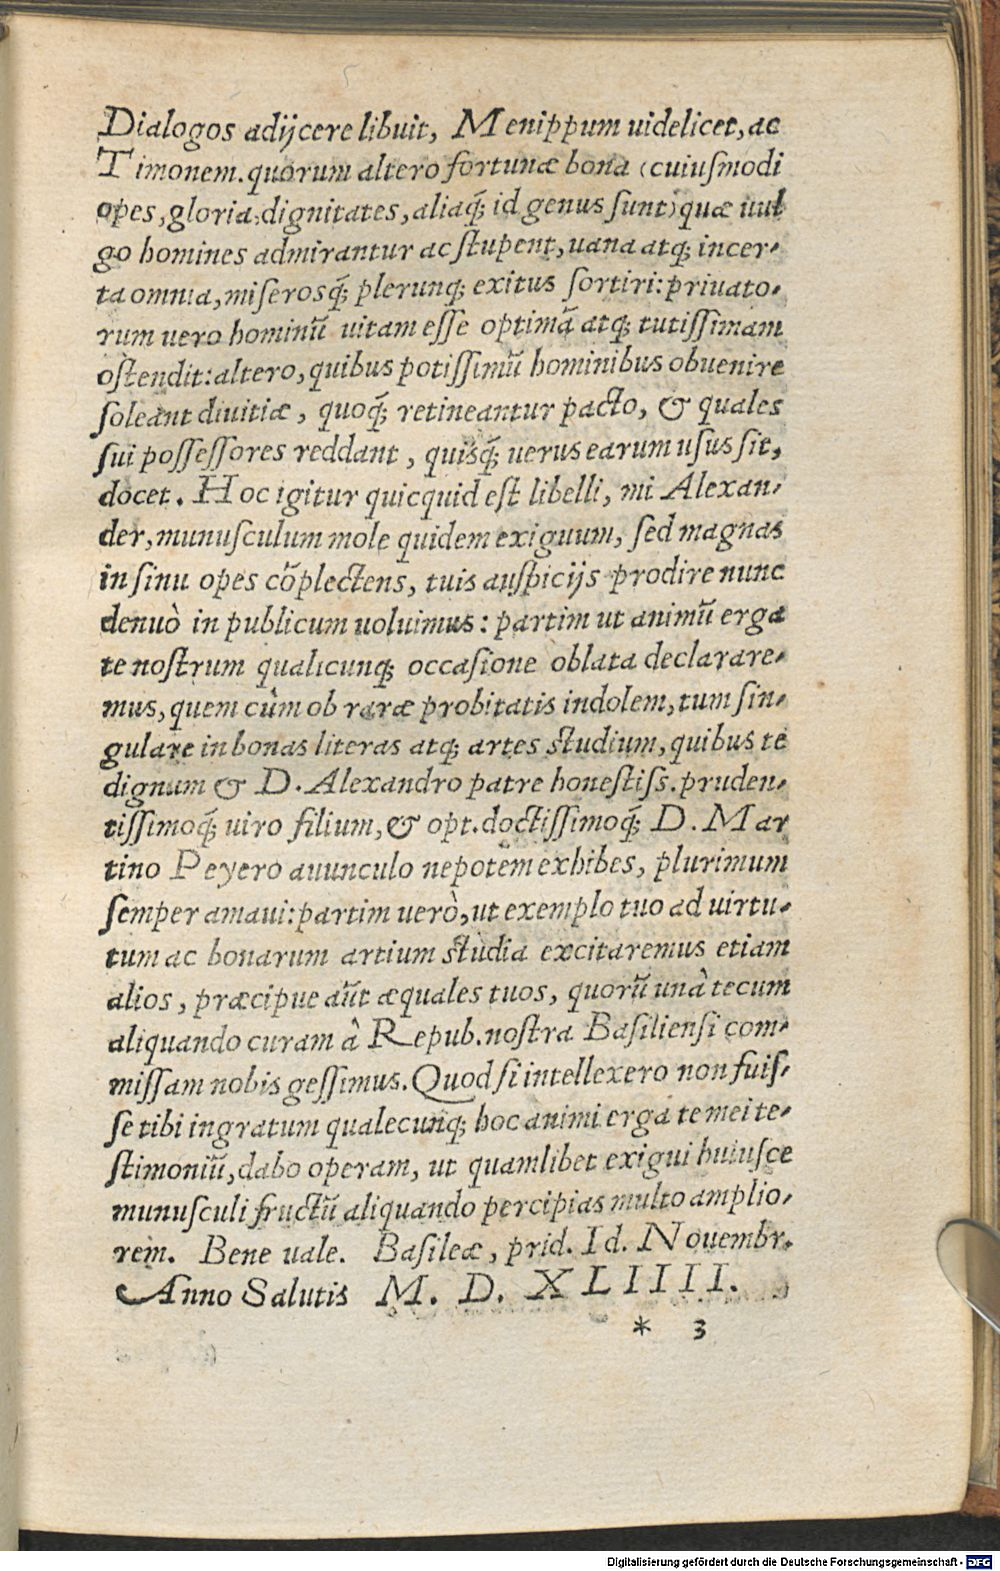 Dialogos adijcere libuit, Menippum uidelicet, ac
Timonem. quorum altero fortunæ bona (cuiusmodi
opes, gloria, dignitates, aliaq́; id genus sunt) quæ uul
go homines admirantur ac stupent, uana atq; incer-
ta omnia, miserosq́; plerunq; exitus sortiri: priuato-
rum uero hominũ uitam esse optimã atq; tutissimam
ostendit: altero, quibus potissimũ hominibus obuenire
soleant diuitiæ, quoq́; retineantur pacto, & quales
sui possessores reddant, quisq́; uerus earum usus sit,
docet. Hoc igitur quicquid est libelli, mi Alexan-
der, munusculum mole quidem exiguum, sed magnas
in sinu opes cõplectens, tuis auspicijs prodire nunc
denuò in publicum uoluimus: partim ut animũ erga
te nostrum qualicunq; occasione oblata declarare-
mus, quem cùm ob raræ probitatis indolem, tum sin-
gulare in bonas literas atq; artes studium, quibus te
dignum & D. Alexandro patre honestiss. pruden-
tissimoq́; uiro filium, & opt. doctissimoq́; D. Mar
tino Peyero auunculo nepotem exhibes, plurimum
semper amaui: partim uerò, ut exemplo tuo ad uirtu-
tum ac bonarum artium studia excitaremus etiam
alios, præcipue aũt æquales tuos, quorũ unà tecum
aliquando curam à Repub. nostra Basiliensi com-
missam nobis gessimus. Quod si intellexero non fuis-
se tibi ingratum qualecunq; hoc animi erga te mei te-
stimoniũ, dabo operam, ut quamlibet exigui huiusce
munusculi fructũ aliquando percipias multo amplio-
rem. Bene uale. Basileæ, prid. Id. Nouembr.
Anno Salutis M. D. XLIIII.
* 3
Digitalisierung gefördert durch die Deutsche Forschungsgemeinschaft - DFG